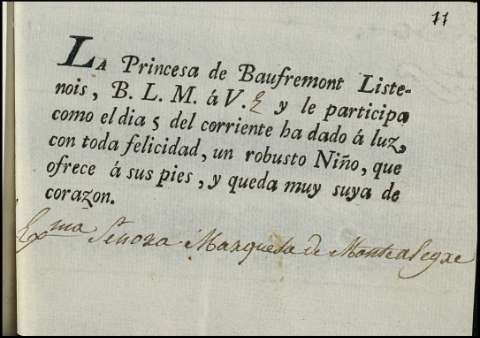 11
LA Princesa de Baufremont Liste-
nois, B. L. M. á V. E y le participa
como el dia 5 del corriente ha dado á luz,
con toda felicidad, un robusto Niño, que
ofrece á sus pies, y queda muy suya de
corazon.
Exma Señora Marquesa de Montealegre